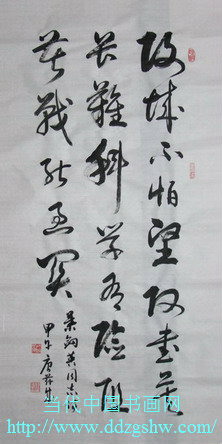 攻城不怕坚攻书莫
畏难科学有险阻
苦战能过关
叶剑英同志诗
甲午
当代中国书画网
www.ddzgshw.com